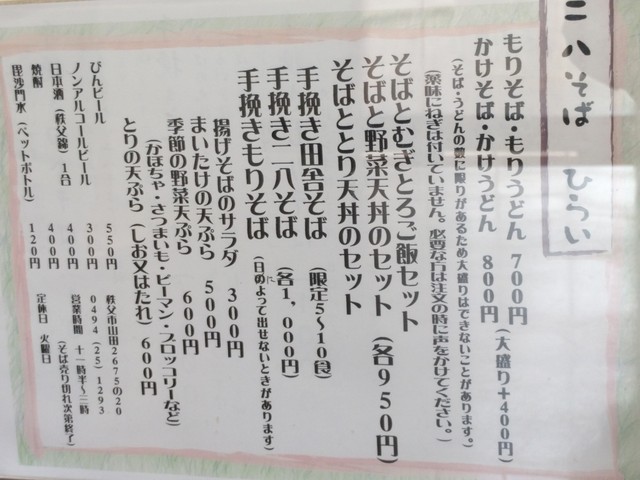 二八そば ひらい
もりそば・もりうどん 700円(大盛り+400円)
かけそば・かけうどん 800円
(そば・うどんの量に限りがあるため大盛りはできないことがあります。)
(薬味にねぎは付いていません。必要な方は注文の時に声をかけてください。)
そばとむぎとろご飯セット
そばと野菜天丼のセット (各950円)
そばととり天丼のセット
手挽き田舎そば (限定5~10食)
手挽き二八そば (各1,000円)
手挽きもりそば (日によって出せないときがあります)
揚げそばのサラダ 300円
まいたけの天ぷら 500円
季節の野菜天ぷら 600円
(かぼちゃ・さつまいも・ピーマン・ブロッコリーなど)
とりの天ぷら(しお又はたれ)600円
びんビール 550円
ノンアルコールビール 300円
日本酒(秩父錦)1合 400円
焼酎 400円
毘沙門水(ペットボトル) 120円
秩父市山田2675の20
0494(25)1293
営業時間 十一時半~三時
(そば売り切れ次第終了)
定休日 火曜日